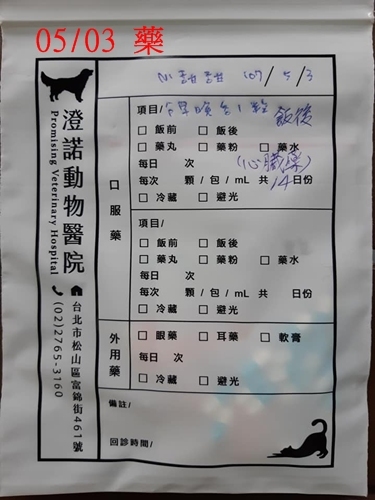 05/03 藥
小甜甜 107/5/3
澄諾動物醫院
Promising Veterinary Hospital
台北市松山區富錦街461號
(02)2765-3160
口服藥
項目/ 早晚各1粒 飯後
□ 飯前 □ 飯後
□ 藥丸 □ 藥粉 □ 藥水
每日 次 (心臟藥)
每次 顆 / 包 / mL 共 14 日份
□ 冷藏 □ 避光
項目/
□ 飯前 □ 飯後
□ 藥丸 □ 藥粉 □ 藥水
每日 次
每次 顆 / 包 / mL 共 日份
□ 冷藏 □ 避光
外用藥
□ 眼藥 □ 耳藥 □ 軟膏
每日 次
□ 冷藏 □ 避光
備註/
回診時間/